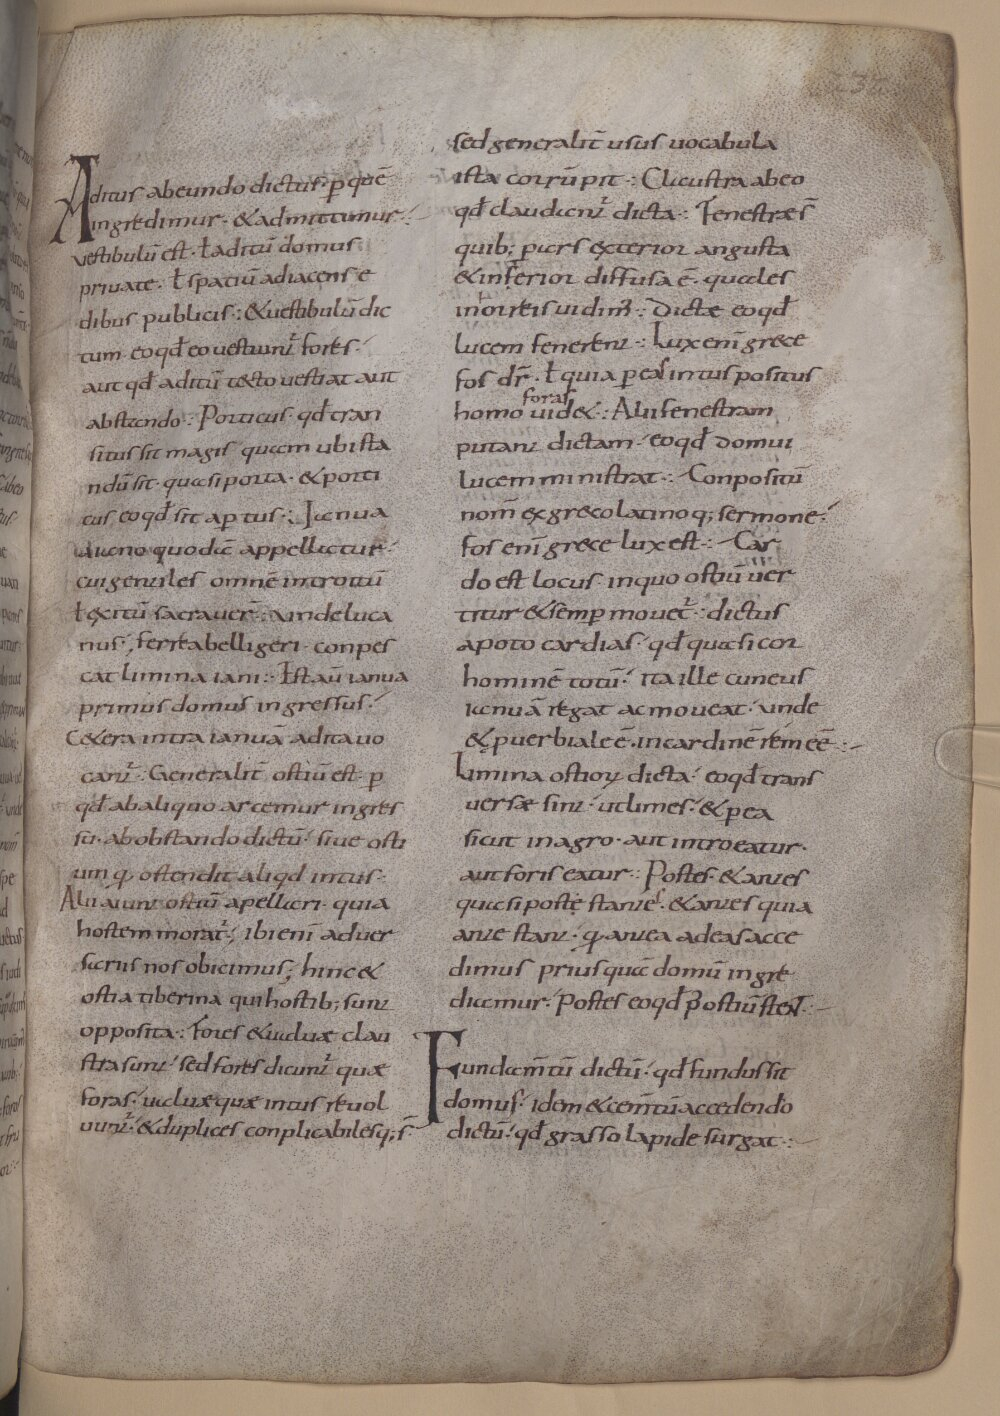 Aditus abeundo dictus· p̄ quē
ingredimur· &admittimur:
vestibulū est· ł aditū domus
private· ł spatiū adiacens e
dibus publicis:· &uestibulū dic
tum· eoqđ eo vestiunt̉ fores·
aut qđ aditū tecto vestiat aut
abscondo:· Porticus· qđ tran
situs sit magis quam ubista
ndū sit· quasi porta· &porti
cus eoqđ sit ap̄tus:· Ianua
aiano quodā appellatur·
cui gentiles omnē introitū
ł exitū sacraver̄· unde luca
nus; ferrea belligeri· conpes
cat limina iani:· Est aū ianua
primus domus ingressus·
C&era intra ianuā adita vo
cant̉:· Generalit̄ ostiū est· p̄
qđ ab aliquo arcemur ingres
su· ab obstando dictū· siue osti
um qꝫ ostendit aliqđ intus·
Alii aiunt ostiū apellari· quia
hostem morat̉; ibi enī adver
sariis nos obicimus; hinc &
ostia tiberina qui hostib; sunt
opposita:· Fores &ualuæ clau
stra sunt· sed fores dicunt̉ quæ
foras· ualuæ quæ intus revol
vunt̉· &duplices conplicabilesq; s̄
sed generalit̄ usus vocabula
ista corrūpit:· Claustra abeo
qđ claudant̉ dicta:· Fenestræ s̄
quib; pars exterior angusta
&inferior diffusa ē· quales
inorreis uidim̉:· Dictæ eoqđ
lucem fenerent:· Lux enī grece
fos dr̄· ł quia p̄ eas intus positus
foras
homo uid&:· Alii fenestram
putant dictam· eoqđ domui
lucem ministrat:· Conpositū
nom̄ exgreco latinoq; sermone·
fos enī grece lux est:· Car
do est locus inquo ostiū ver
titur &semp̄ movet̉:· dictus
apoto cardias· qđ quasi cor
hominē totū· ita ille cuneus
ianuā regat ac moveat· unde
&pverbiale ē· incardinē rem eē:·
Limina ostioꝝ dicta· eoqđ trans
versæ sint· ut limes· &p̄ ea
sicut in agro· aut introeatur·
aut foris eatur:· Postes &antes
quasi postę stantes· &antes quia
ante stant· qꝫ antea ad eas acce
dimus priusquā domū ingre
diamur· Postes eoqđ p̄ ostiū stent·
Fundam̄tū dictū· qđ fundus sit
domus· idem &cem̄tū accedendo
dictū· qđ grasso lapide surgat:·